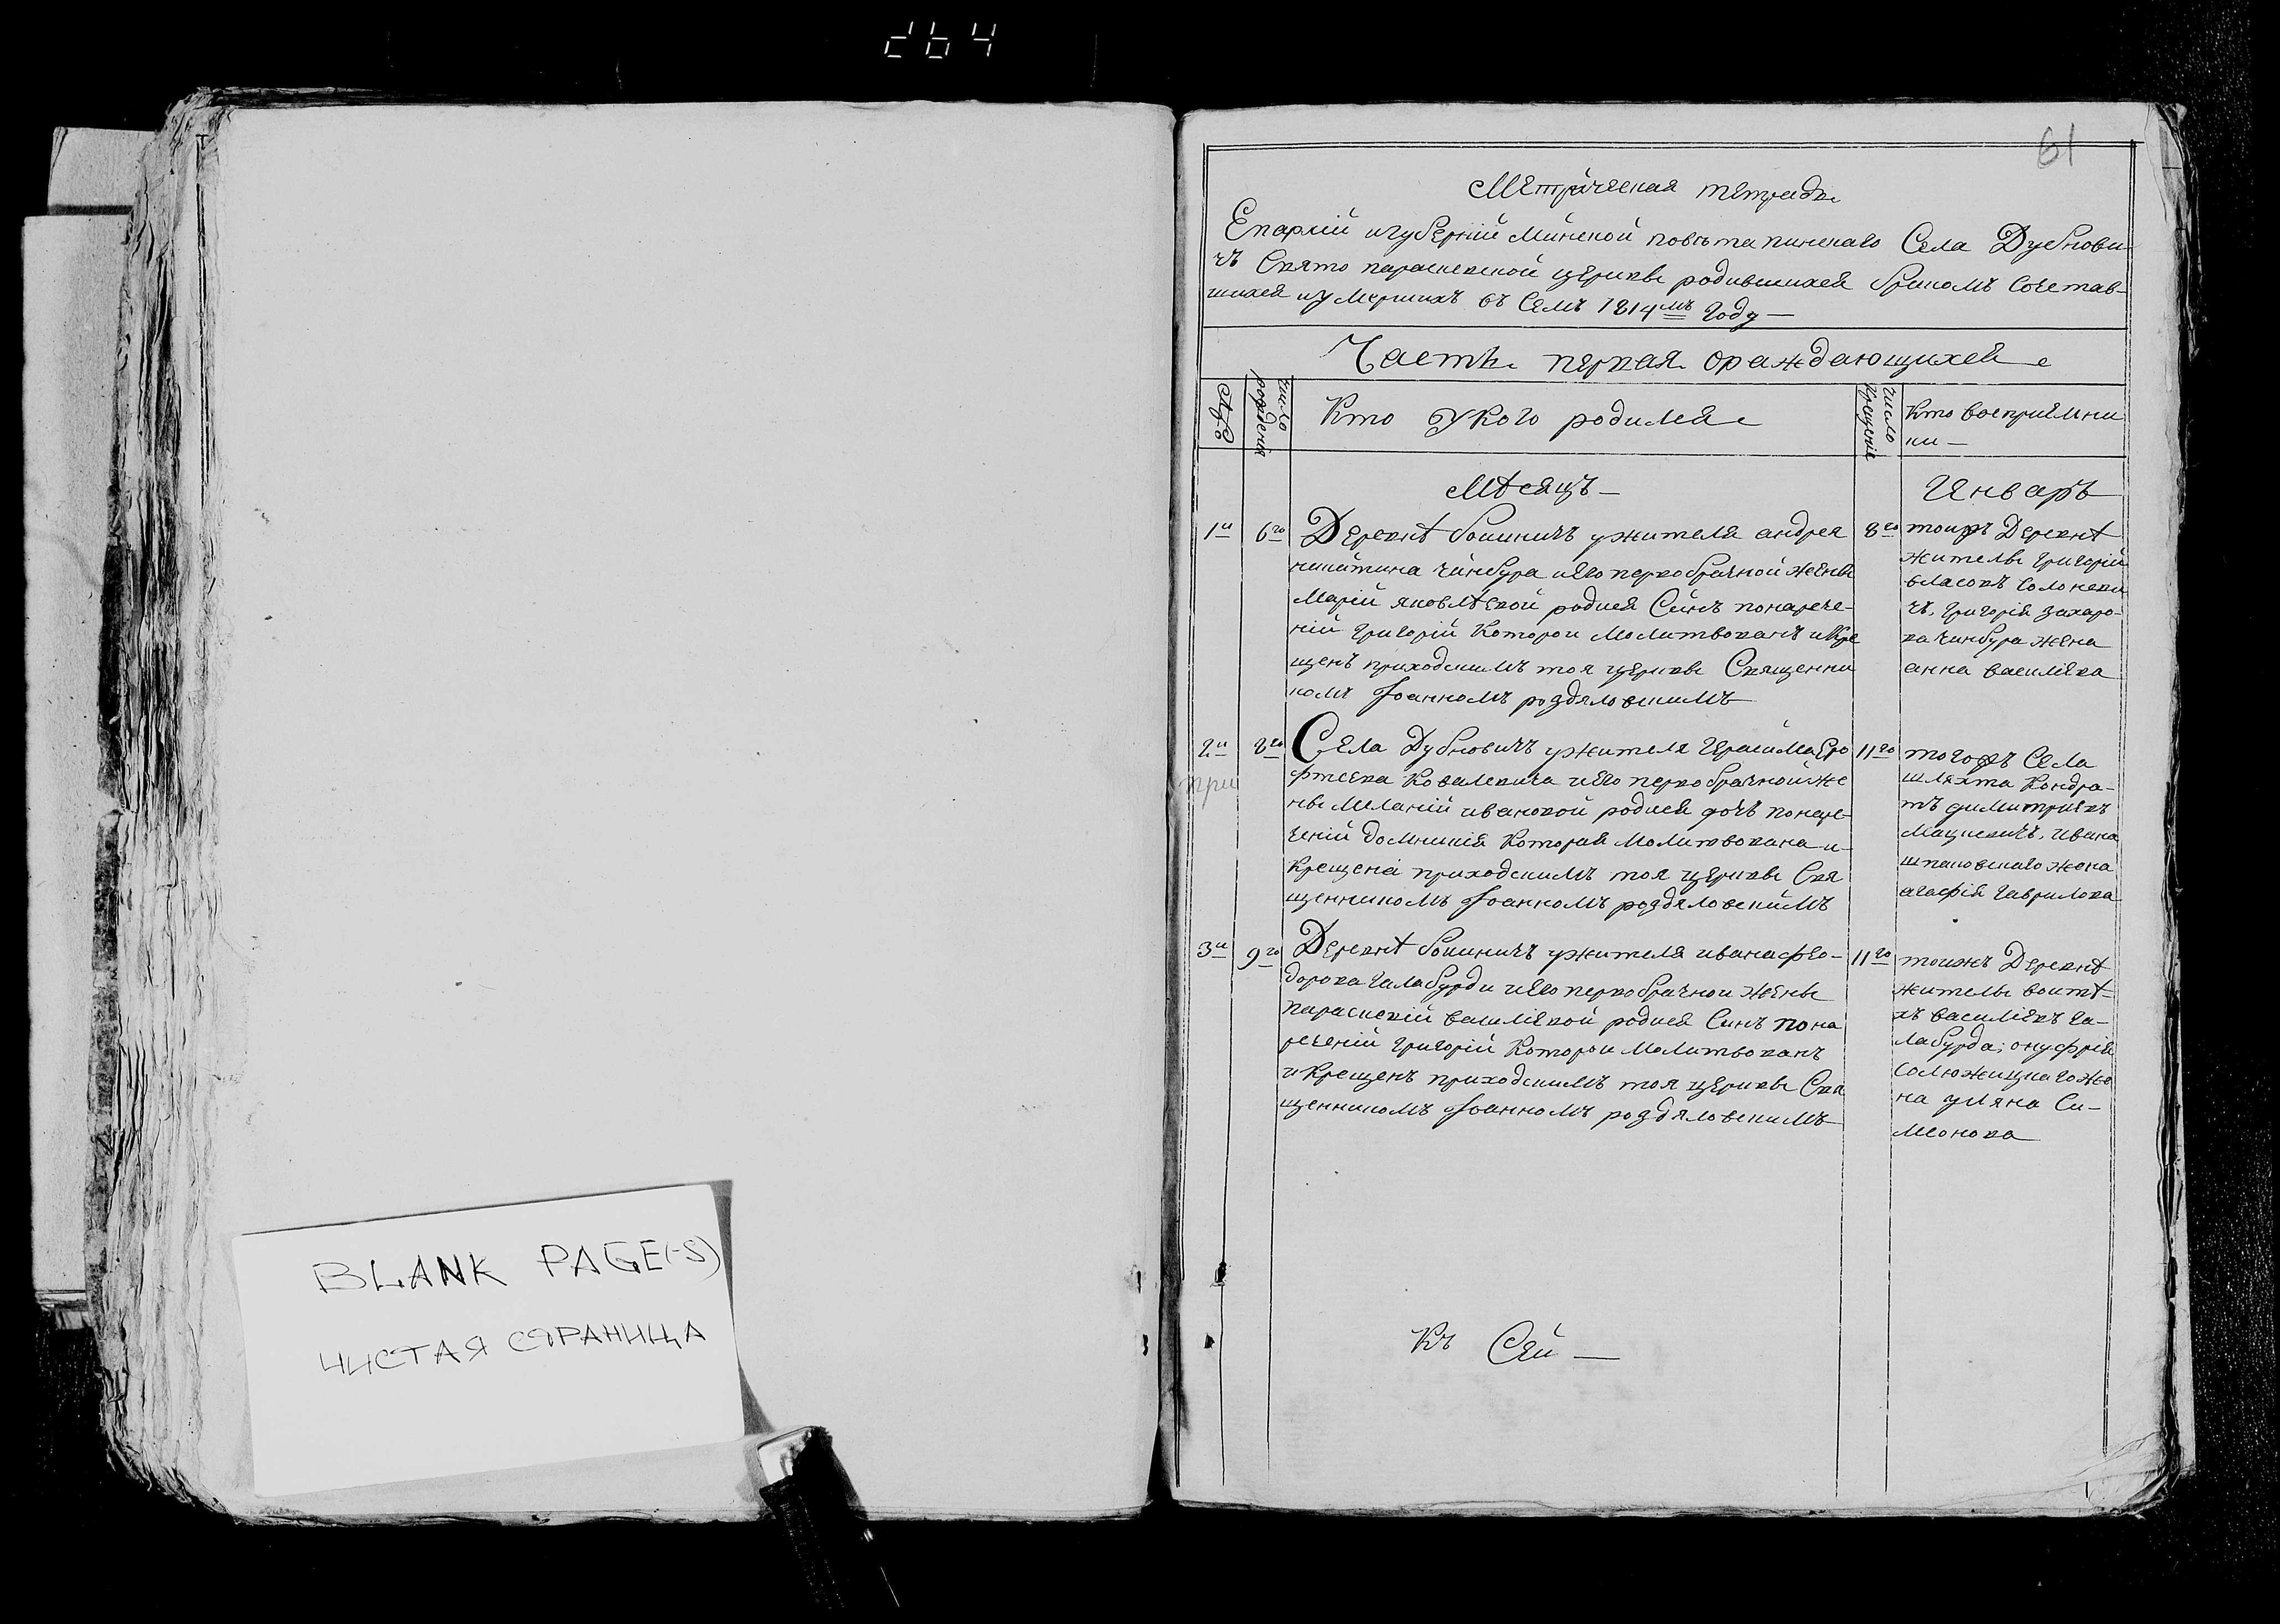 264
61
Метрическая тетрадь
Епархіи и губерніи Минской повѣта пинскаго Села Дубнови-
чъ Свято параскевской церкве родившихся бракомъ Сочетав-
шихся и умершихъ въ Семъ 1814мъ году —
Часть первая ораждающихся
число рождения
Кто У кого родился
число крещенiе
Кто восприемни
ки —
Мѣсяцъ —
Январь
1й 6го Деревнѣ бошничъ ужителя андрея
никитина чинбура иего первобрачной жены
Маріи яковлѣвой родися Синъ понарече-
ніи григорій Которои Молитвованъ икре
щенъ приходскимъ тоя церкве Священни
комъ Іоанномъ роздяловскимъ
8го тоижъ Деревнѣ
жителъ григорій
власовъ солоневи
чъ, григорія захаро-
ва чинбура жена
анна василева
2й 8го Села Дубновичъ ужителя герасима Еро
фтеева Ковалевича иего первобрачной же
ны Меланіи ивановой родися дочъ понаре-
ченіи домникія Которая Молитвована и
крещена приходскимъ тоя церкве Свя
щенникомъ Іоанномъ роздяловскимъ
при
11го тогожъ Села
шляхта Кондра-
тъ димитріевъ
Мацкевичъ, ивана
шпаковскаго жена
агафія гаврилова
3й 9го Деревнѣ бошничъ ужителя ивана фео-
дорова галабурди иего первобрачнои жены
параскевіи василіевой родися Синъ пона
реченіи григорій Которои Молитвованъ
и крещенъ приходскимъ тоя церкве Свя
щенникомъ Іоанномъ роздяловскимъ
11го тоижъ Деревнѣ
жителъ воитѣ-
хъ василевъ га-
лабурда; онуфрія
жена уляна Си-
меонова
Къ Сей —
BLANK PAGE(-S)
ЧИСТАЯ СТРАНИЦА